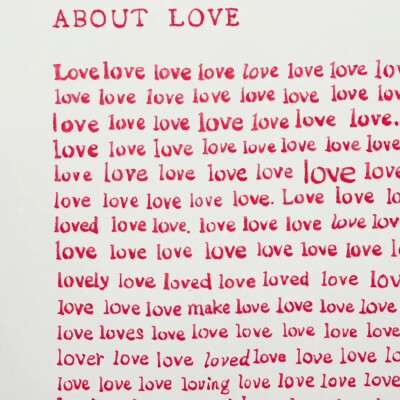 ABOUT LOVE
Love love love love love love love lov
love love love love love love love lov
love love love love love love love love.
love love love love love love love love
love love love love love love love
love love love love love. Love love lo
loved love love. love love love love lov
love love love love love love love l
lovely love loved love loved love lov
love love love make love love love love
love loves love love love love love love
lover love love loved love love love lo
love love love loving love love love love